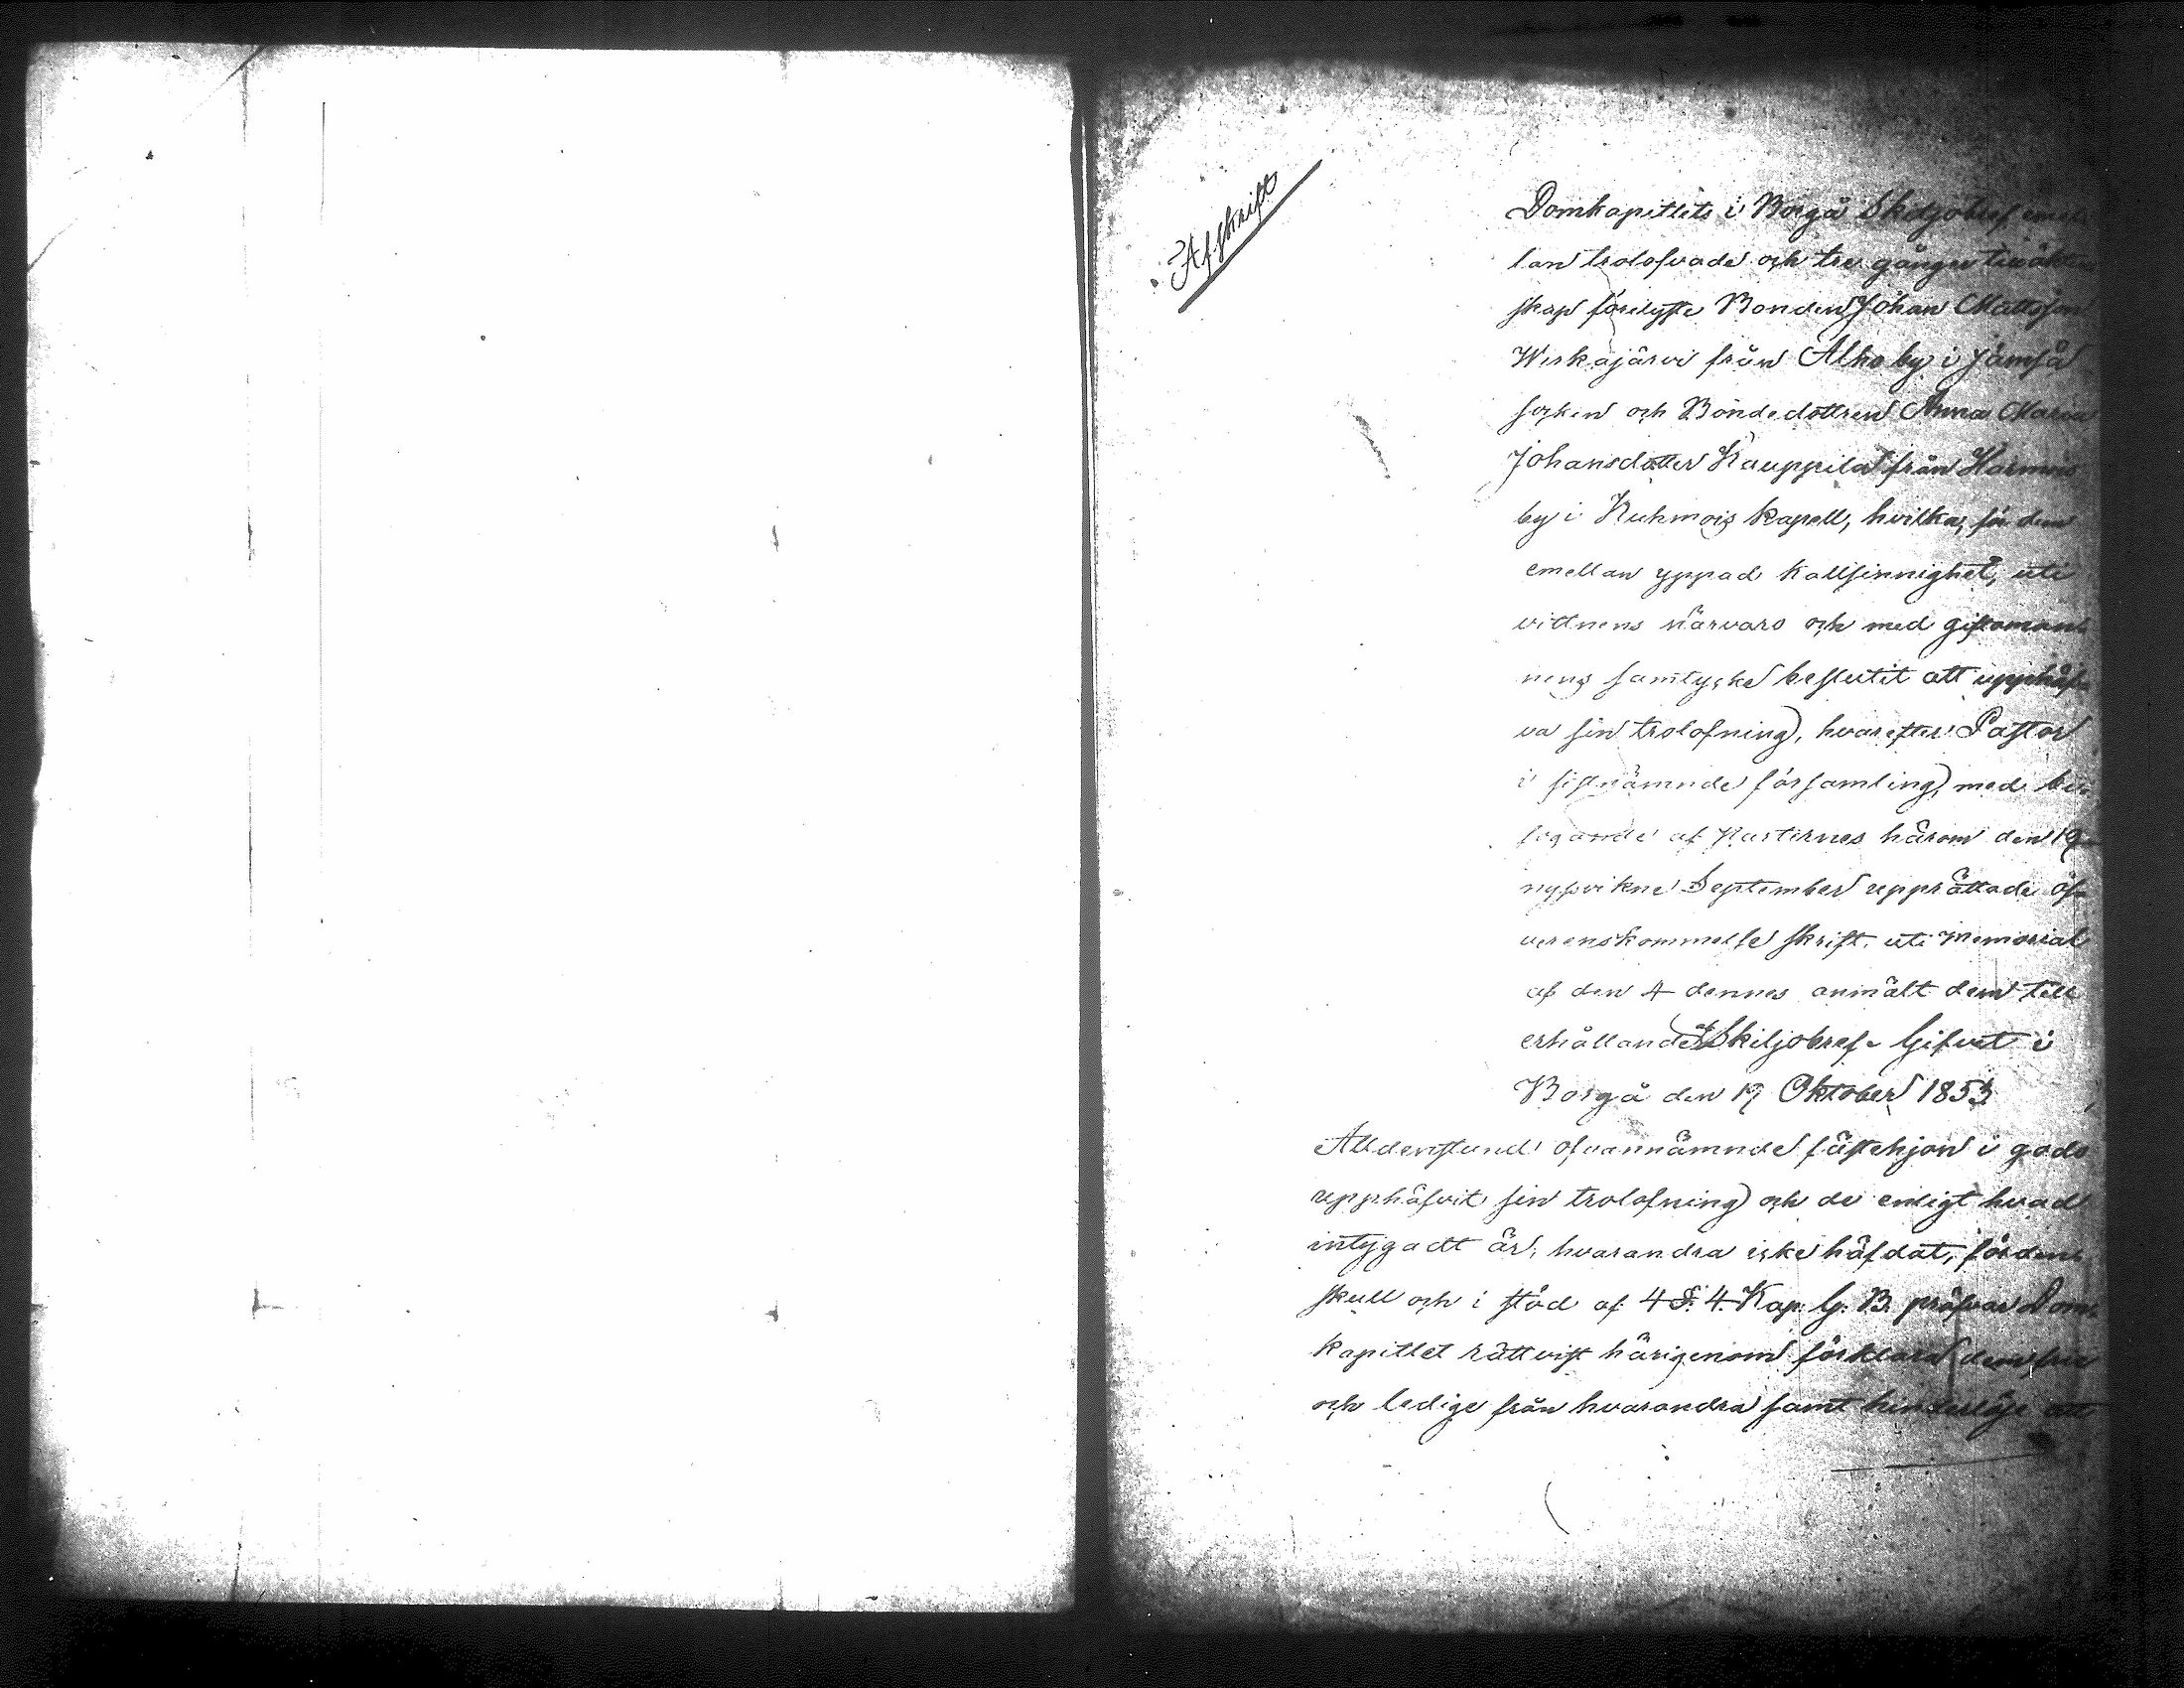 Afskrift
Domkapitlets i Borgå Skiljobref emel-
lan trolofvade och tre gånger till äkten-
skap förelyste Bonden Johan Mattsson
Wirkajärvi från Alho by i Jämsä
socken och Bondedottren Anna Maria
Johansdotter Kauppila från Harmois
by i Kuhmois kapell, hvilka, för dem
emellan yppad kallsinnighet, uti
vittnens närvaro och med giftoman-
nens samtycke beslutit att upphäf-
va sin trolofning, hvarefter Pastor
i sistnämnde församling, med bi-
fogande af Parternes härom den 19
nyssvikne September upprättade öf-
verenskommelse skrift, uti memorial
af den 4 dennes anmält dem till
erhållande af Skiljobref. Gifvet i
Borgå den 17 Oktober 1853
Alldenstund ofvannämnde fästehjon i godo
upphäfvit sin trolofning och de enligt hvad
intygadt är, hvarandra icke häfdat, fördens-
skull och i stöd af 4 §. 4. Kap. G. B. pröfvar Dom-
kapitlet rättvist härigenom förklara dem fria
och ledige från hvarandra samt hinderlöse att